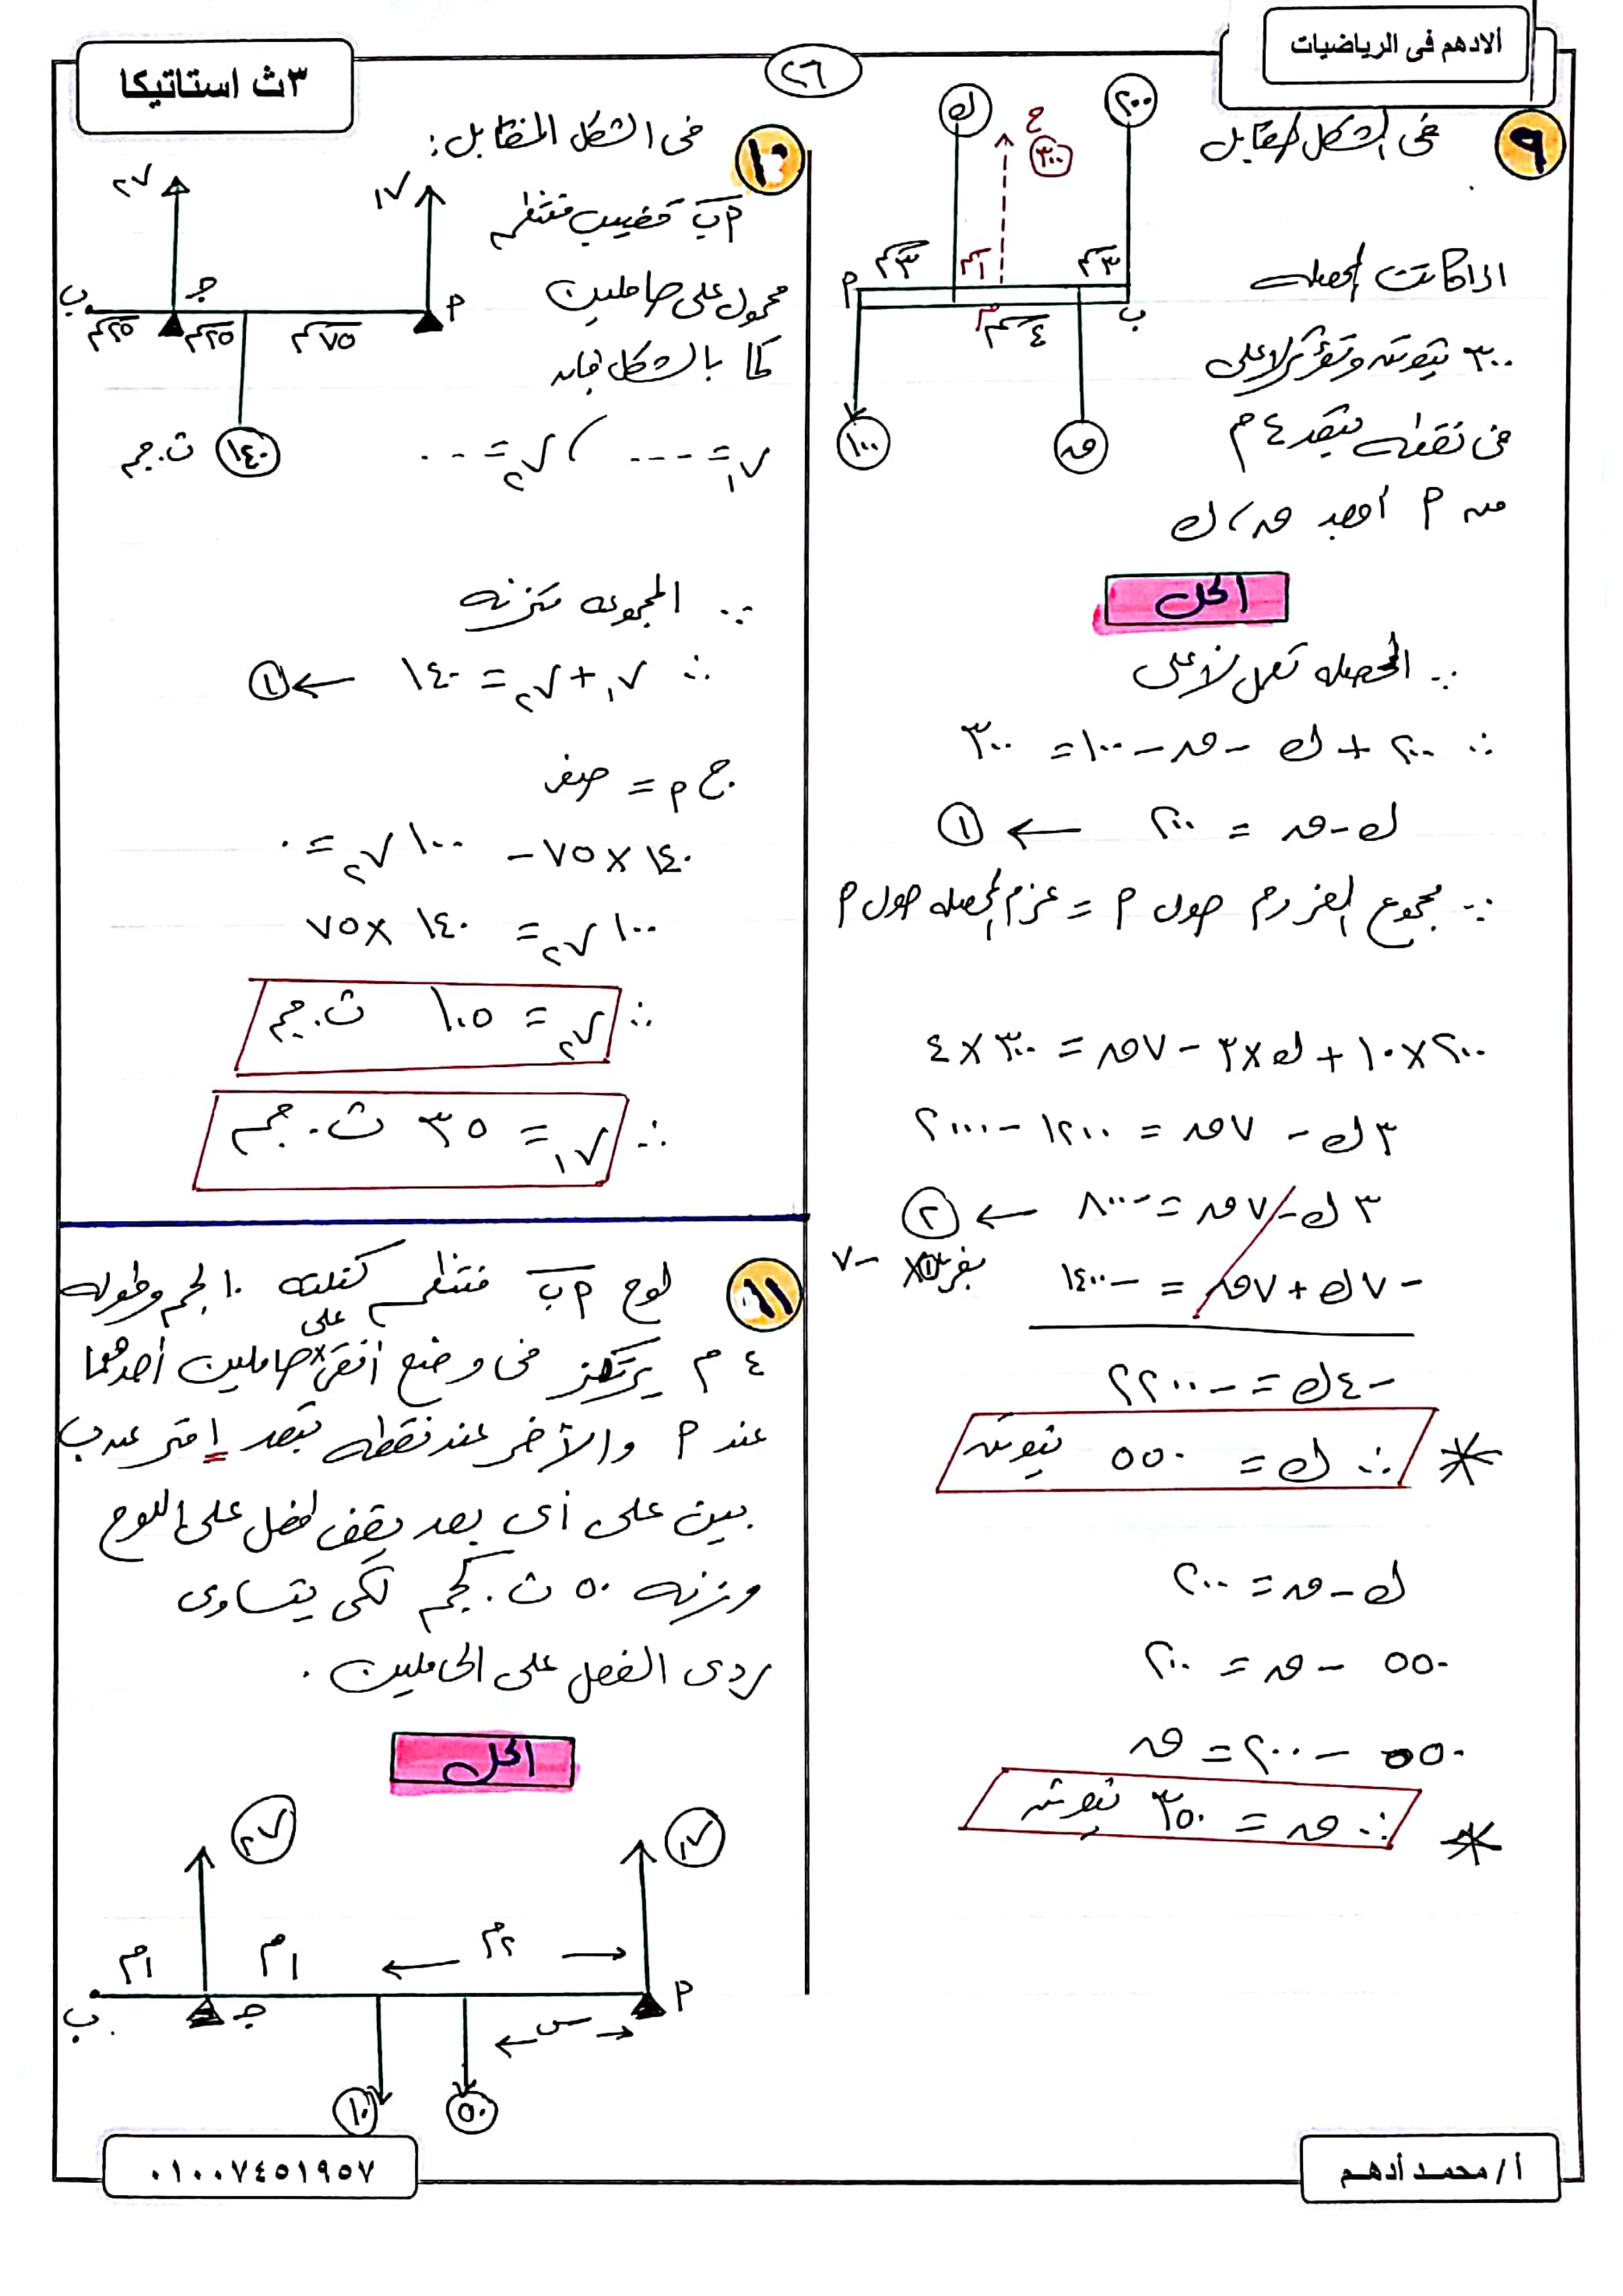 الادهم فى الرياضيات
٢٦
٣ث استاتيكا
٩ فى الشكل المقابل
اذا كانت المحصله
٣٠٠ نيوتن وتؤثر لاعلى
فى نقطه تبعد ٤ م
من ٢ اوجد ق، ك
ك
ح
٣٠٠
٢٠٠
٣م
١م
٣م
٤م
م
ب
١٠٠
ق
الحل
∵ المحصله تعمل لأعلى
∴ ٢٠٠ + ك - ق - ١٠٠ = ٣٠٠
ك - ق = ٢٠٠ ← ①
∵ مجموع العزوم حول م = عزم المحصله حول م
٢٠٠ × ١٠ + ك × ٣ - ٧ ق = ٣٠٠ × ٤
٣ ك - ٧ ق = ١٢٠٠ - ٢٠٠٠
٣ ك - ٧ ق = - ٨٠٠ ← ②
بضرب ① × - ٧
- ٧ ك + ٧ ق = - ١٤٠٠
- ٤ ك = - ٢٢٠٠
∴ ك = ٥٥٠ نيوتن
ك - ق = ٢٠٠
٥٥٠ - ق = ٢٠٠
٥٥٠ - ٢٠٠ = ق
∴ ق = ٣٥٠ نيوتن
١٠ فى الشكل المقابل :
م ب قضيب منتظم
محمول على حاملين
كما بالشكل فإن
ر١ = --- ، ر٢ = ---
ر٢
ر١
ب
ج
م
٢٥سم
٢٥سم
٧٥سم
١٤٠ ث.جم
∵ المجموعه متزنه
∴ ر١ + ر٢ = ١٤٠ ← ①
ج م = صفر
١٤٠ × ٧٥ - ١٠٠ ر٢ = ٠
١٠٠ ر٢ = ١٤٠ × ٧٥
∴ ر٢ = ١٠٥ ث.جم
∴ ر١ = ٣٥ ث.جم
١١ لوح م ب منتظم كتلته ١٠ كجم وطوله
٤ م يرتكز فى وضع أفقى على حاملين أحدهما
عند م والآخر عند نقطه تبعد ١ متر عن ب
بين على أى بعد يقف طفل على اللوح
وزنه ٥٠ ث.كجم لكى يتساوى
ردى الفعل على الحاملين .
الحل
ر٢
ر١
١م
١م
٢م
ب
ج
س
م
١٠
٥٠
أ / محمد أدهم
٠١٠٠٧٤٥١٩٥٧